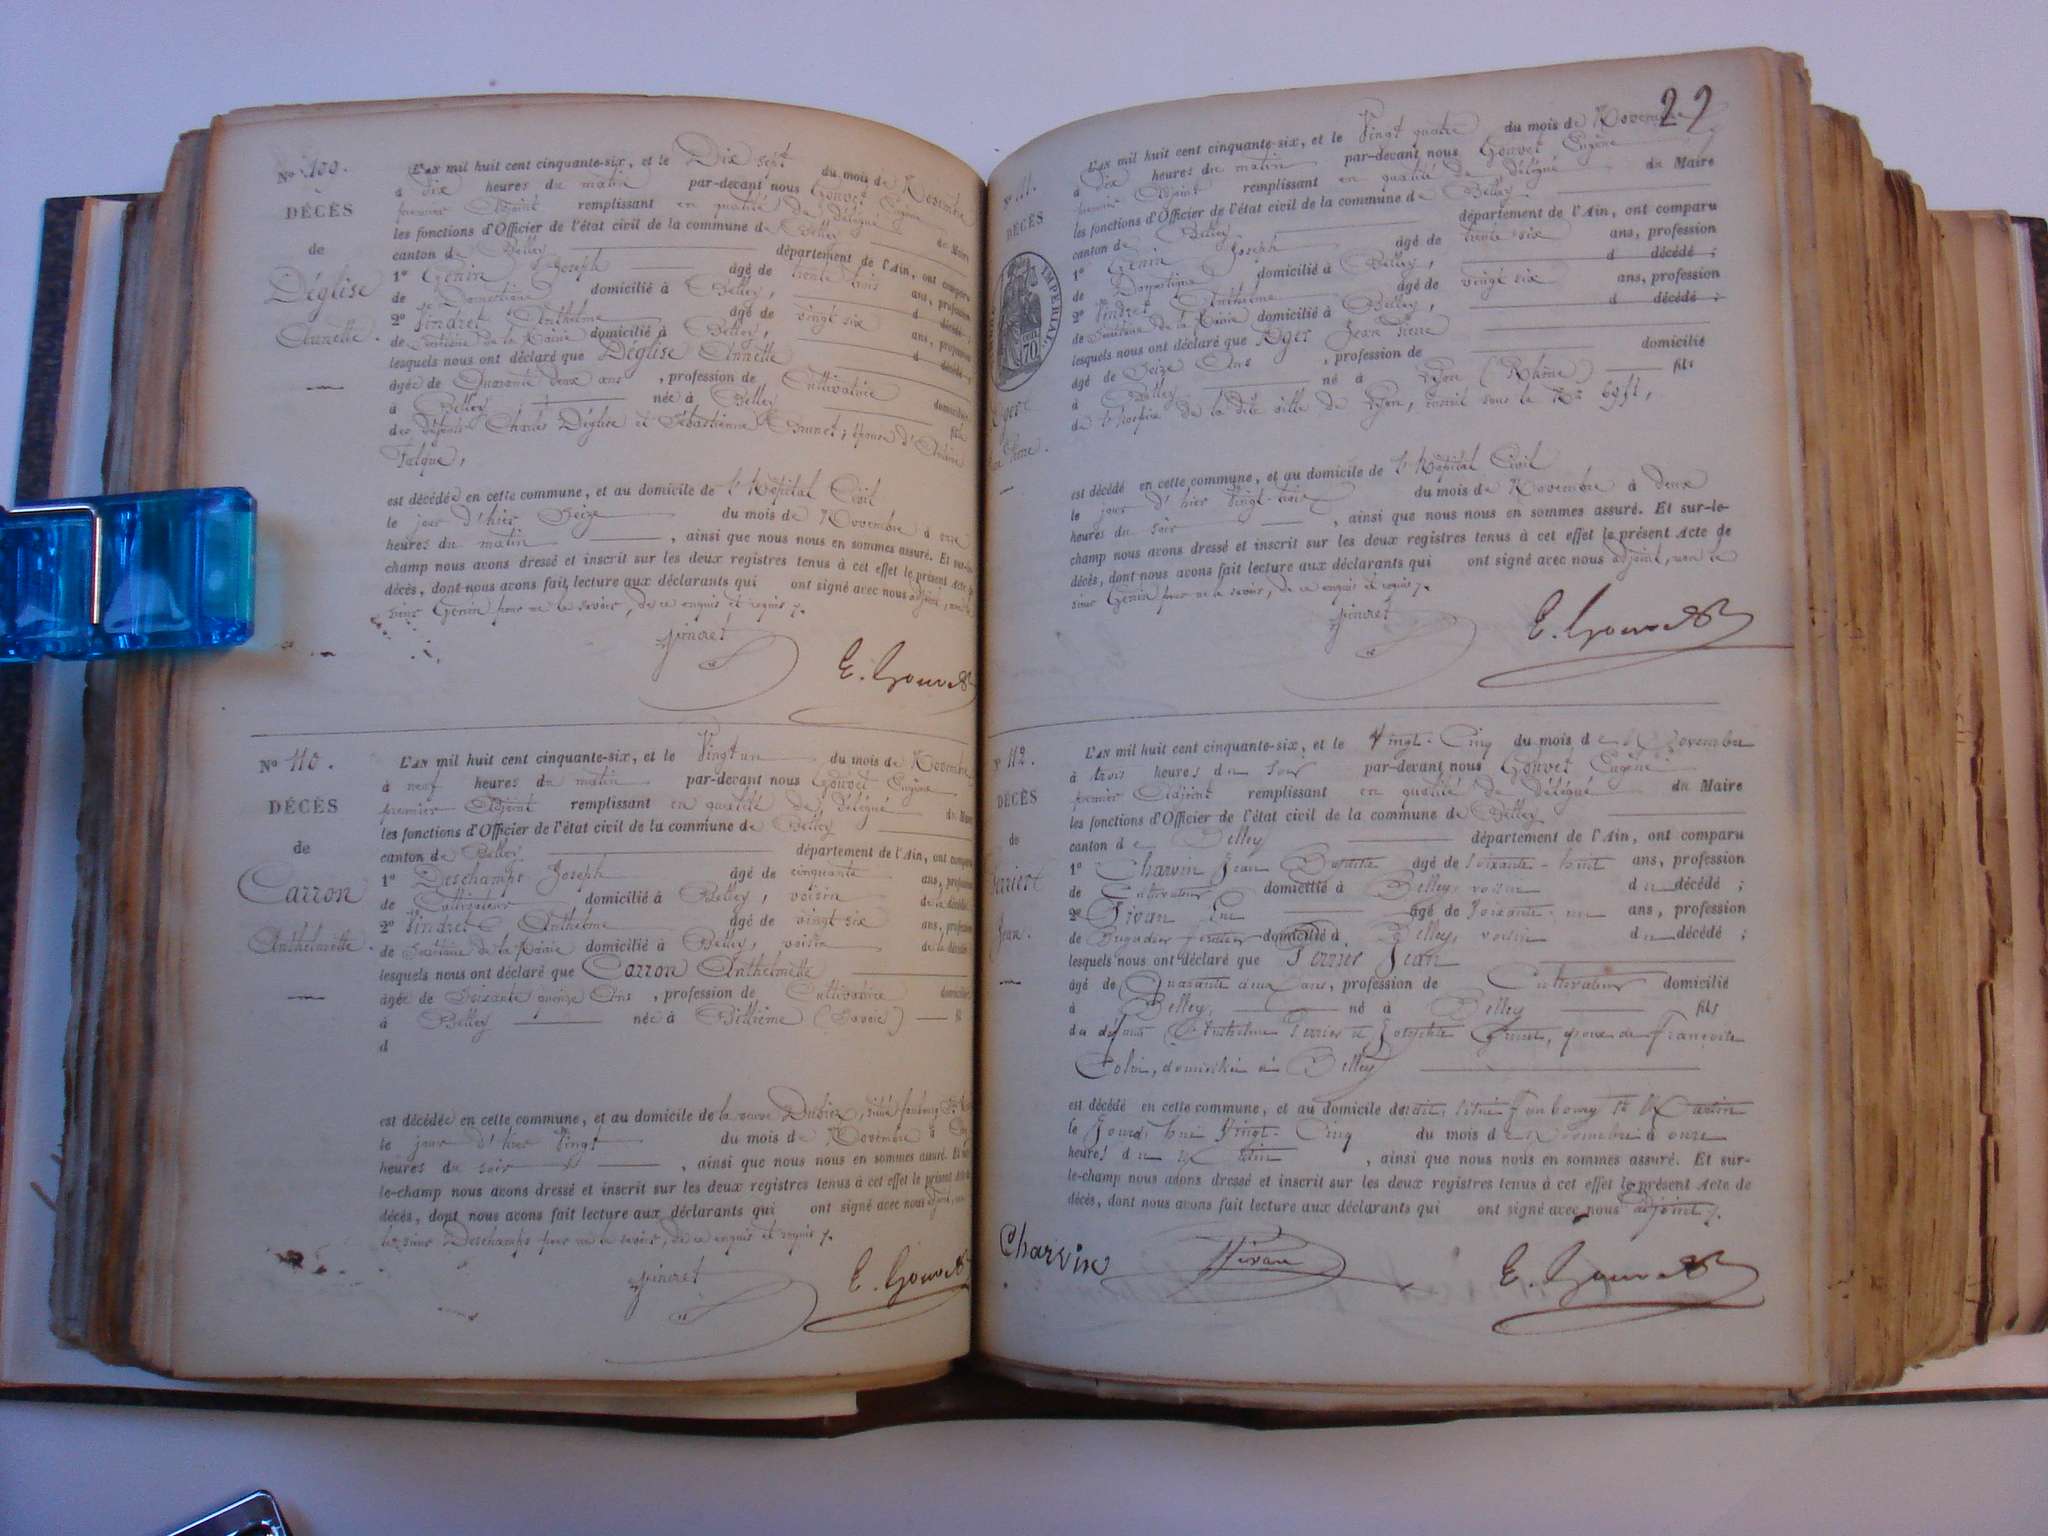 No 109.
DÉCÈS
de
Déglise
Annette.
L'AN mil huit cent cinquante-six, et le Dix sept du mois de Novembre
à dix heures du matin par-devant nous Gouvet Eugène
premier Adjoint remplissant en qualité de délégué du Maire
les fonctions d'Officier de l'état civil de la commune de Belley
canton de Belley département de l'Ain, ont comparu
1º Genin Joseph âgé de trente trois ans, profession
de Domestique domicilié à Belley, d décédé;
2º Pindret Anthelme âgé de vingt six ans, profession
de Secrétaire de la Mairie domicilié à Belley, d décédé;
lesquels nous ont déclaré que Déglise Annette
âgée de Quarante deux ans, profession de Cultivatrice domiciliée
à Belley née à Belley fille
des défunts Charles Déglise et Sébastienne Brunet; épouse d'
Falque,
est décédée en cette commune, et au domicile de l'Hôpital Civil
le jour d'hier Seize du mois de Novembre à onze
heures du matin, ainsi que nous nous en sommes assuré. Et sur-le-
champ nous avons dressé et inscrit sur les deux registres tenus à cet effet le présent Acte de
décès, dont nous avons fait lecture aux déclarants qui ont signé avec nous adjoint, non le
sieur Genin pour ne le savoir, de ce enquis et requis.
Pindret
E. Gouvet
No 110.
DÉCÈS
de
Carron
Anthelmette.
L'AN mil huit cent cinquante-six, et le Vingt un du mois de Novembre
à neuf heures du matin par-devant nous Gouvet Eugène
premier Adjoint remplissant en qualité de Délégué du Maire
les fonctions d'Officier de l'état civil de la commune de Belley
canton de Belley département de l'Ain, ont comparu
1º Deschamps Joseph âgé de cinquante ans, profession
de Cultivateur domicilié à Belley, voisin de la décédée
2º Pindret Anthelme âgé de vingt six ans, profession
de Secrétaire de la Mairie domicilié à Belley, voisin de la décédée
lesquels nous ont déclaré que Carron Anthelmette
âgée de Soixante quinze Ans, profession de Cultivatrice domiciliée
à Belley née à Billième (Savoie) fi
d
est décédée en cette commune, et au domicile de la veuve Dubiez, situé faubourg St
le jour d'hier Vingt du mois de Novembre à Cinq
heures du soir, ainsi que nous nous en sommes assuré. Et sur-
le-champ nous avons dressé et inscrit sur les deux registres tenus à cet effet le présent Acte de
décès, dont nous avons fait lecture aux déclarants qui ont signé avec nous adjoint, non
le sieur Deschamps pour ne le savoir, de ce enquis et requis.
Pindret
E. Gouvet
29
No 111.
DÉCÈS
IMPÉRIAL
70
L'AN mil huit cent cinquante-six, et le Vingt quatre du mois de Novembre
à dix heures du matin par-devant nous Gouvet Eugène
premier Adjoint remplissant en qualité de délégué du Maire
les fonctions d'Officier de l'état civil de la commune de Belley
canton de Belley département de l'Ain, ont comparu
1º Genin Joseph âgé de trente six ans, profession
de Domestique domicilié à Belley, d décédé;
2º Pindret Anthelme âgé de vingt six ans, profession
de Secrétaire de la Mairie domicilié à Belley, d décédé;
lesquels nous ont déclaré que Oger Jean Pierre
âgé de Seize Ans, profession de domicilié
à Belley né à Lyon (Rhône) fils
de l'hospice de la dite ville de Lyon, inscrit sous le No
est décédé en cette commune, et au domicile de l'Hôpital Civil
le jour d'hier Vingt-trois du mois de Novembre à deux
heures du soir, ainsi que nous nous en sommes assuré. Et sur-le-
champ nous avons dressé et inscrit sur les deux registres tenus à cet effet le présent Acte de
décès, dont nous avons fait lecture aux déclarants qui ont signé avec nous adjoint, non le
sieur Genin pour ne le savoir, de ce enquis et requis.
Pindret
E. Gouvet
No 112.
DÉCÈS
de
Perrier
Jean.
L'AN mil huit cent cinquante-six, et le Vingt-Cinq du mois de Novembre
à trois heures du Soir par-devant nous Gouvet Eugène
premier Adjoint remplissant en qualité de délégué du Maire
les fonctions d'Officier de l'état civil de la commune de Belley
canton de Belley département de l'Ain, ont comparu
1º Charvin Jean Baptiste âgé de Soixante-huit ans, profession
de Cultivateur domicilié à Belley, voisin du décédé;
2º Pivan âgé de Soixante-un ans, profession
de Brigadier forestier domicilié à Belley, voisin du décédé;
lesquels nous ont déclaré que Perrier Jean
âgé de Quarante deux ans, profession de Cultivateur domicilié
à Belley, né à Belley fils
du défunt Anthelme Perrier et Josephte, époux de Françoise
Colin, domiciliée à Belley
est décédé en cette commune, et au domicile dudit, situé Faubourg St Martin
le Jourd'hui Vingt-Cinq du mois de Novembre à onze
heures du Matin, ainsi que nous nous en sommes assuré. Et sur-
le-champ nous avons dressé et inscrit sur les deux registres tenus à cet effet le présent Acte de
décès, dont nous avons fait lecture aux déclarants qui ont signé avec nous adjoint.
Charvin
Pivan
E. Gouvet